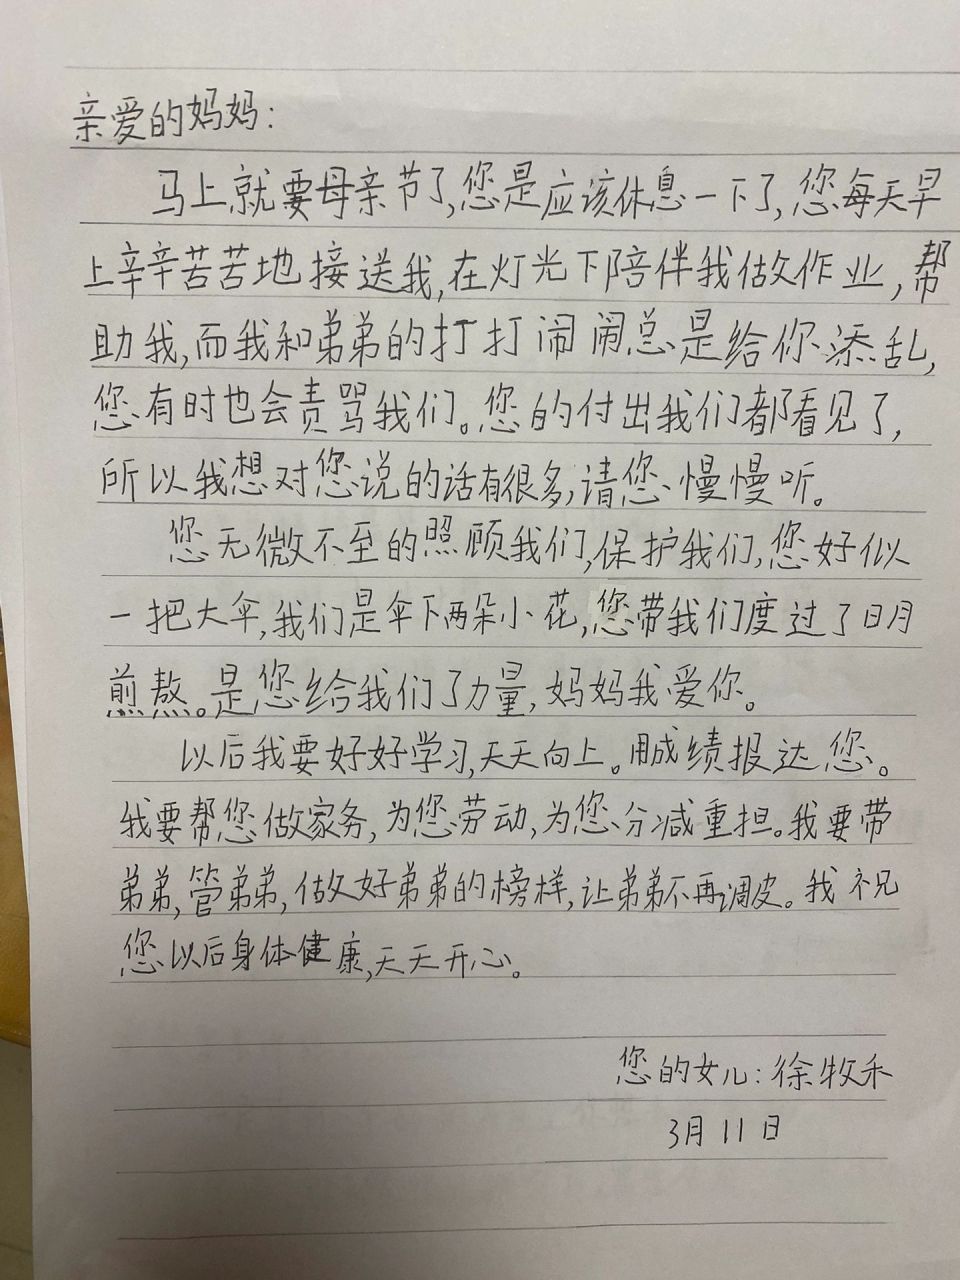 亲爱的妈妈：
马上就要母亲节了,您是应该休息一下了,您每天早
上辛辛苦苦地接送我,在灯光下陪伴我做作业,帮
助我,而我和弟弟的打打闹闹总是给你添乱,
您有时也会责骂我们。您的付出我们都看见了,
所以我想对您说的话有很多,请您慢慢听。
您无微不至的照顾我们,保护我们,您好似
一把大伞,我们是伞下两朵小花,您带我们度过了日月
煎熬。是您给我们了力量,妈妈我爱你。
以后我要好好学习,天天向上。用成绩报达您。
我要帮您做家务,为您劳动,为您分减重担。我要带
弟弟,管弟弟,做好弟弟的榜样,让弟弟不再调皮。我祝
您以后身体健康,天天开心。
您的女儿：徐牧禾
3月11日